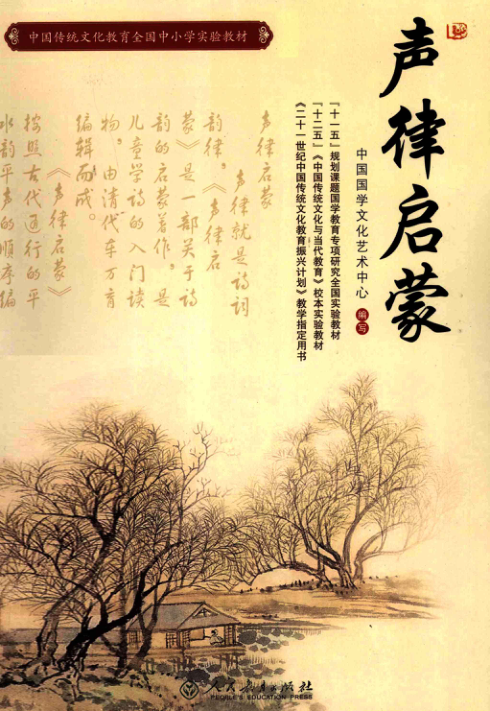 中国传统文化教育全国中小学实验教材
声律启蒙
中国国学文化艺术中心 编写
『十一五』规划课题国学教育专项研究全国实验教材
『十二五』《中国传统文化与当代教育》校本实验教材
《二十一世纪中国传统文化教育振兴计划》教学指定用书
声律启蒙
声律就是诗词
韵律，《声律启
蒙》是一部关于诗
韵的启蒙著作，是
儿童学诗的入门读
物，由清代车万育
编辑而成。
《声律启蒙》
按照古代通行的平
水韵平声的顺序编
人民教育出版社
PEOPLE'S EDUCATION PRESS